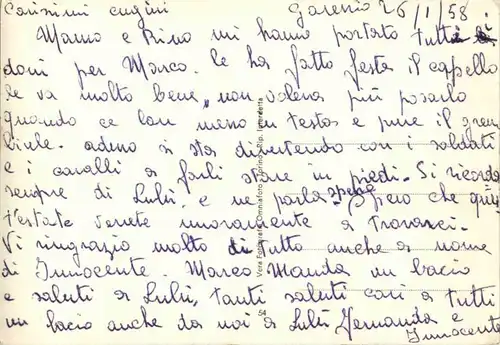 Carissimi cugini Garessio 26/1/58
Mamo e Rino mi hanno portato tutti i
doni per Marco. le ha fatto festa il cappello
le va molto bene, non voleva più posarlo
quando ce lon messo in testa e pure il grem
biule. adesso si sta divertendo con i soldati
e i cavalli a farli stare in piedi. Si ricorda
sempre di Lulù. e ne parla spesso. Spero che
l'estate venete nuovamente a trovarci.
Vi ringrazio molto di tutto anche a nome
di Innocente. Marco Manda un bacio
e saluti a Lulù, tanti saluti cari a tutti
un bacio anche da noi a Lulù Fernanda e
Innocente
Vera Fotografia Omniafoto Torino - Rip. Interdetta
54